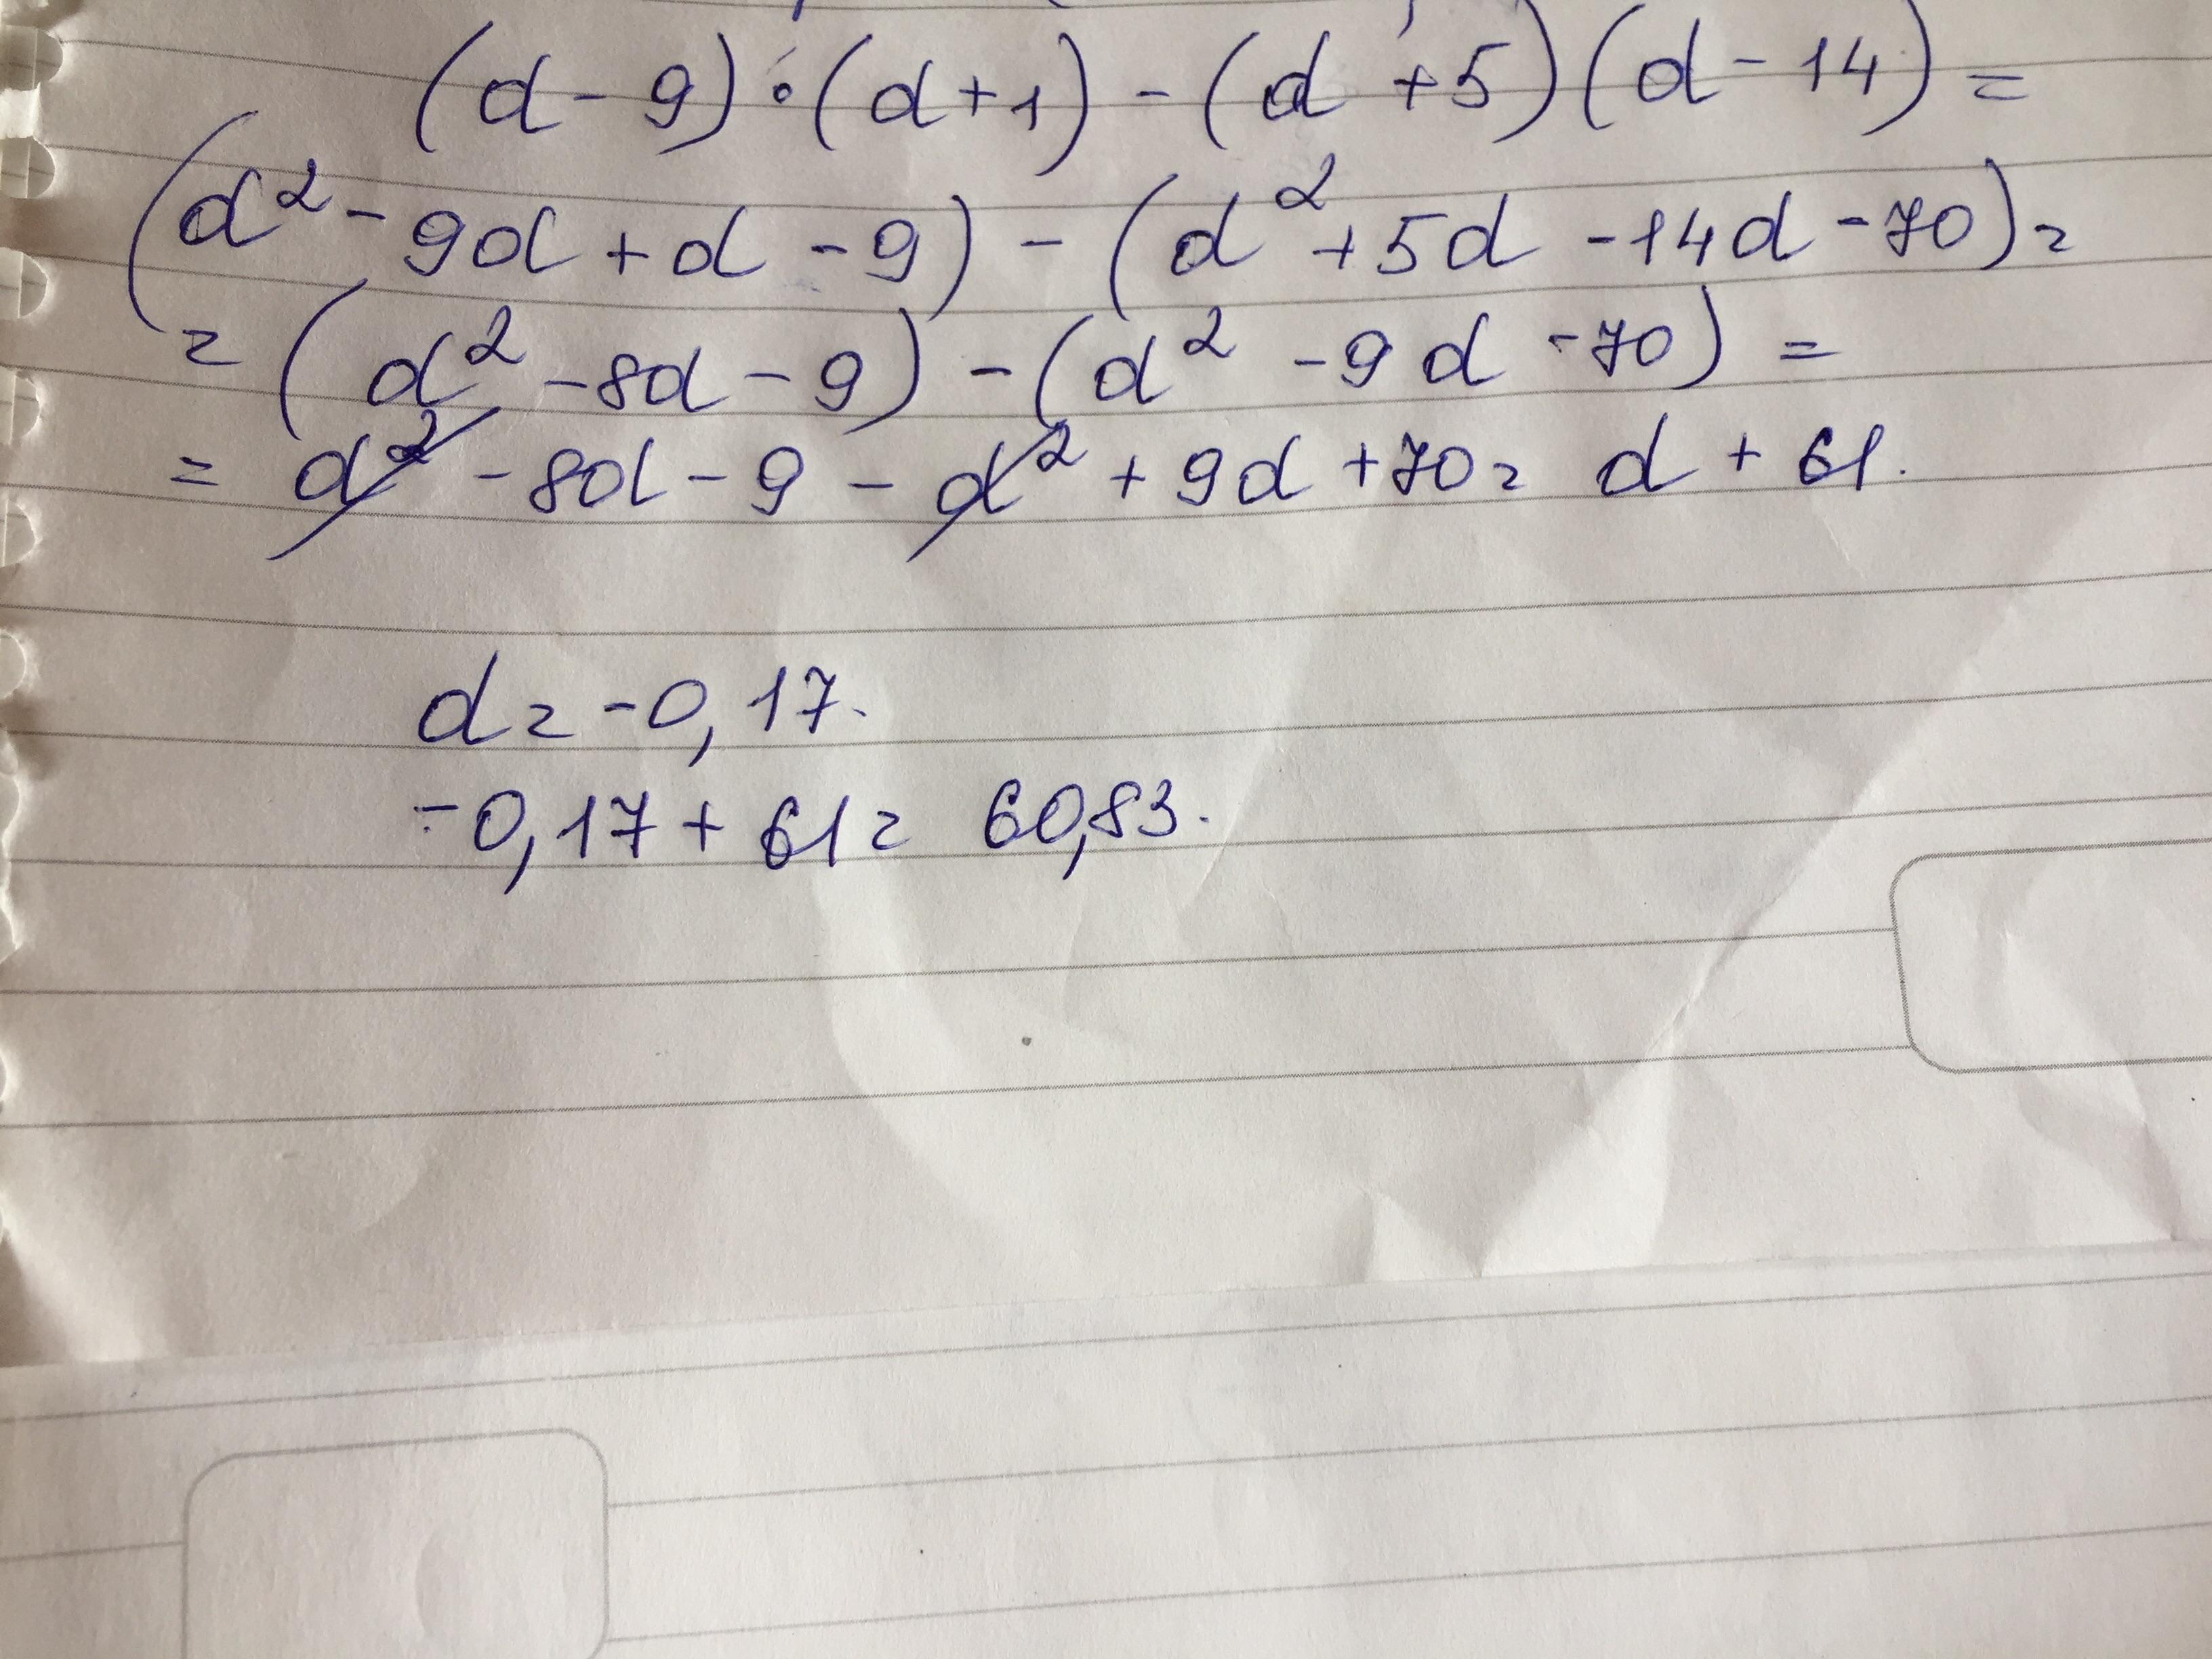 (d - 9) · (d + 1) - (d + 5) (d - 14) =
(d² - 9d + d - 9) - (d² + 5d - 14d - 70) =
= (d² - 8d - 9) - (d² - 9d - 70) =
= d² - 8d - 9 - d² + 9d + 70 = d + 61.
d = -0,17.
-0,17 + 61 = 60,83.